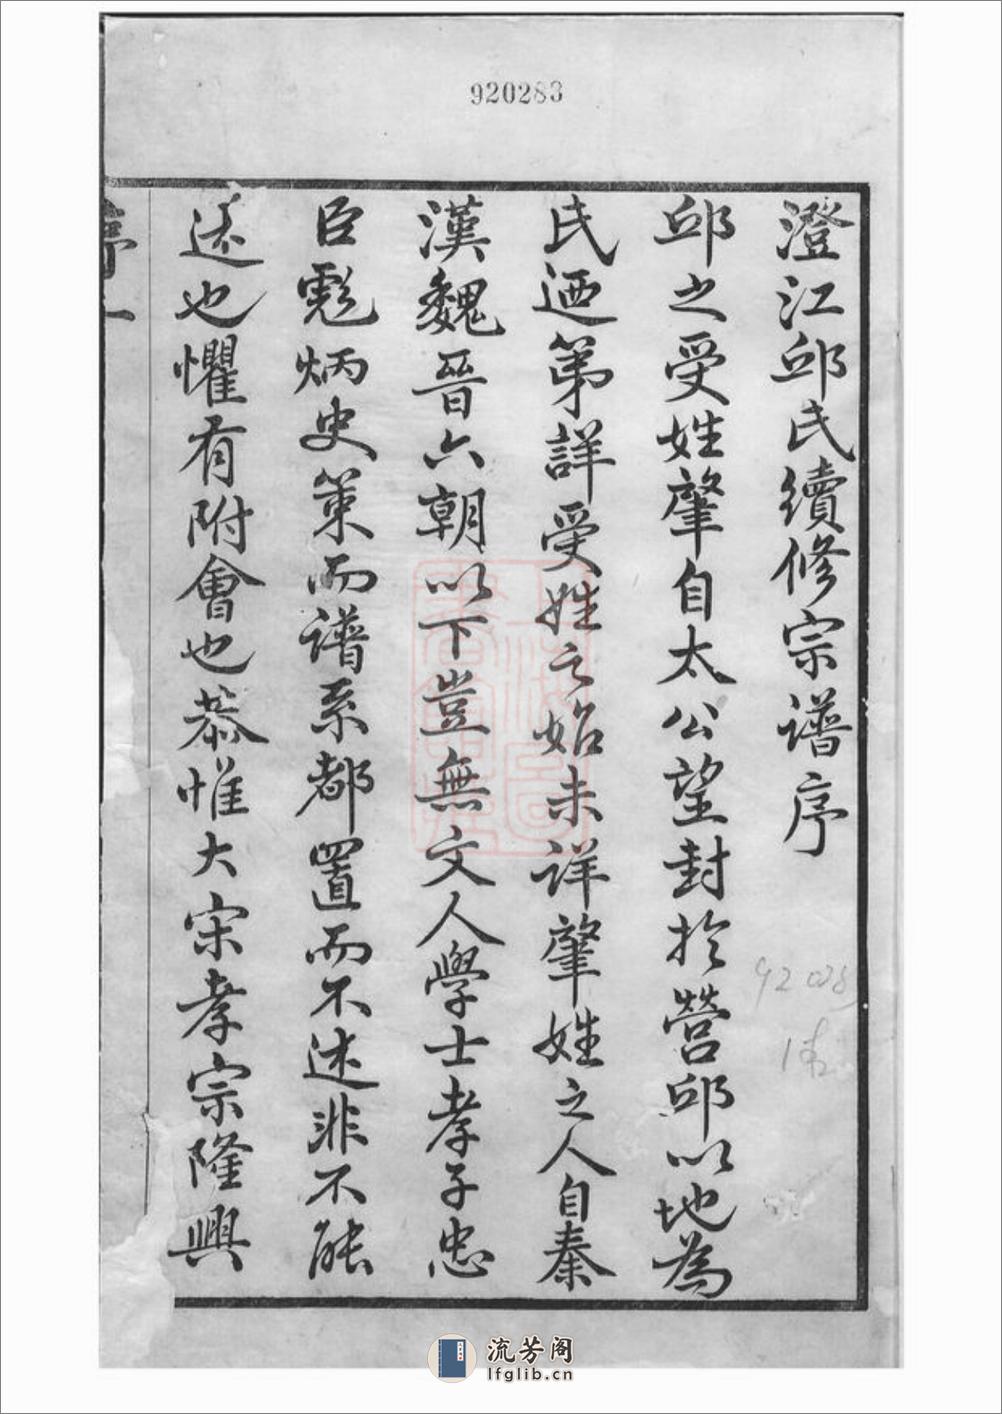 920283
澄江邱氏續修宗譜序
邱之受姓肇自太公望封於營邱以地為
氏迺第詳受姓之始未詳肇姓之人自秦
漢魏晉六朝以下豈無文人學士孝子忠
臣彪炳史策而譜系都置而不述非不能
述也懼有附會也恭惟大宋孝宗隆興
流芳阁
lfglib.cn